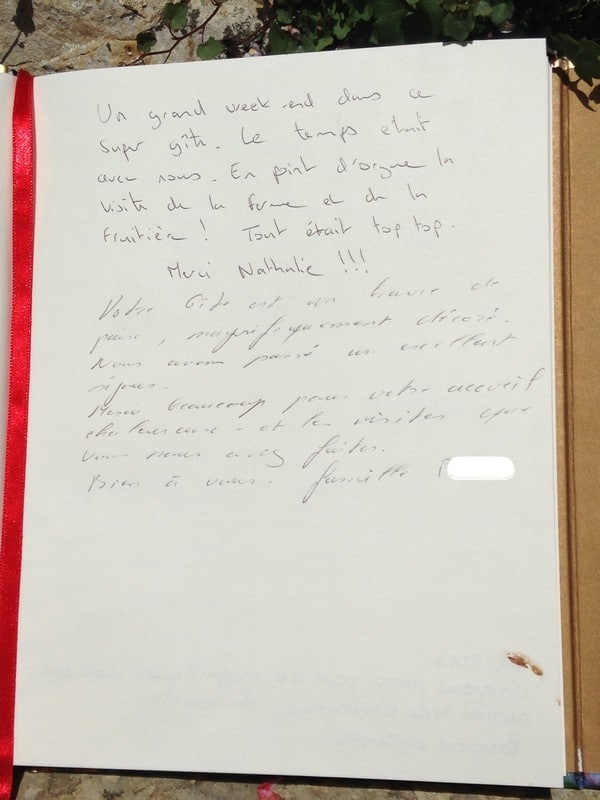 Un grand week-end dans ce
super gîte. Le temps était
avec nous. En point d'orgue la
visite de la ferme et de la
fruitière ! Tout était top top.
Merci Nathalie !!!
Votre Gîte est un havre de
paix, magnifiquement décoré.
Nous avons passé un excellent
séjour.
Merci beaucoup pour votre accueil
chaleureux - et les visites que
vous nous avez faites.
Bien à vous. famille